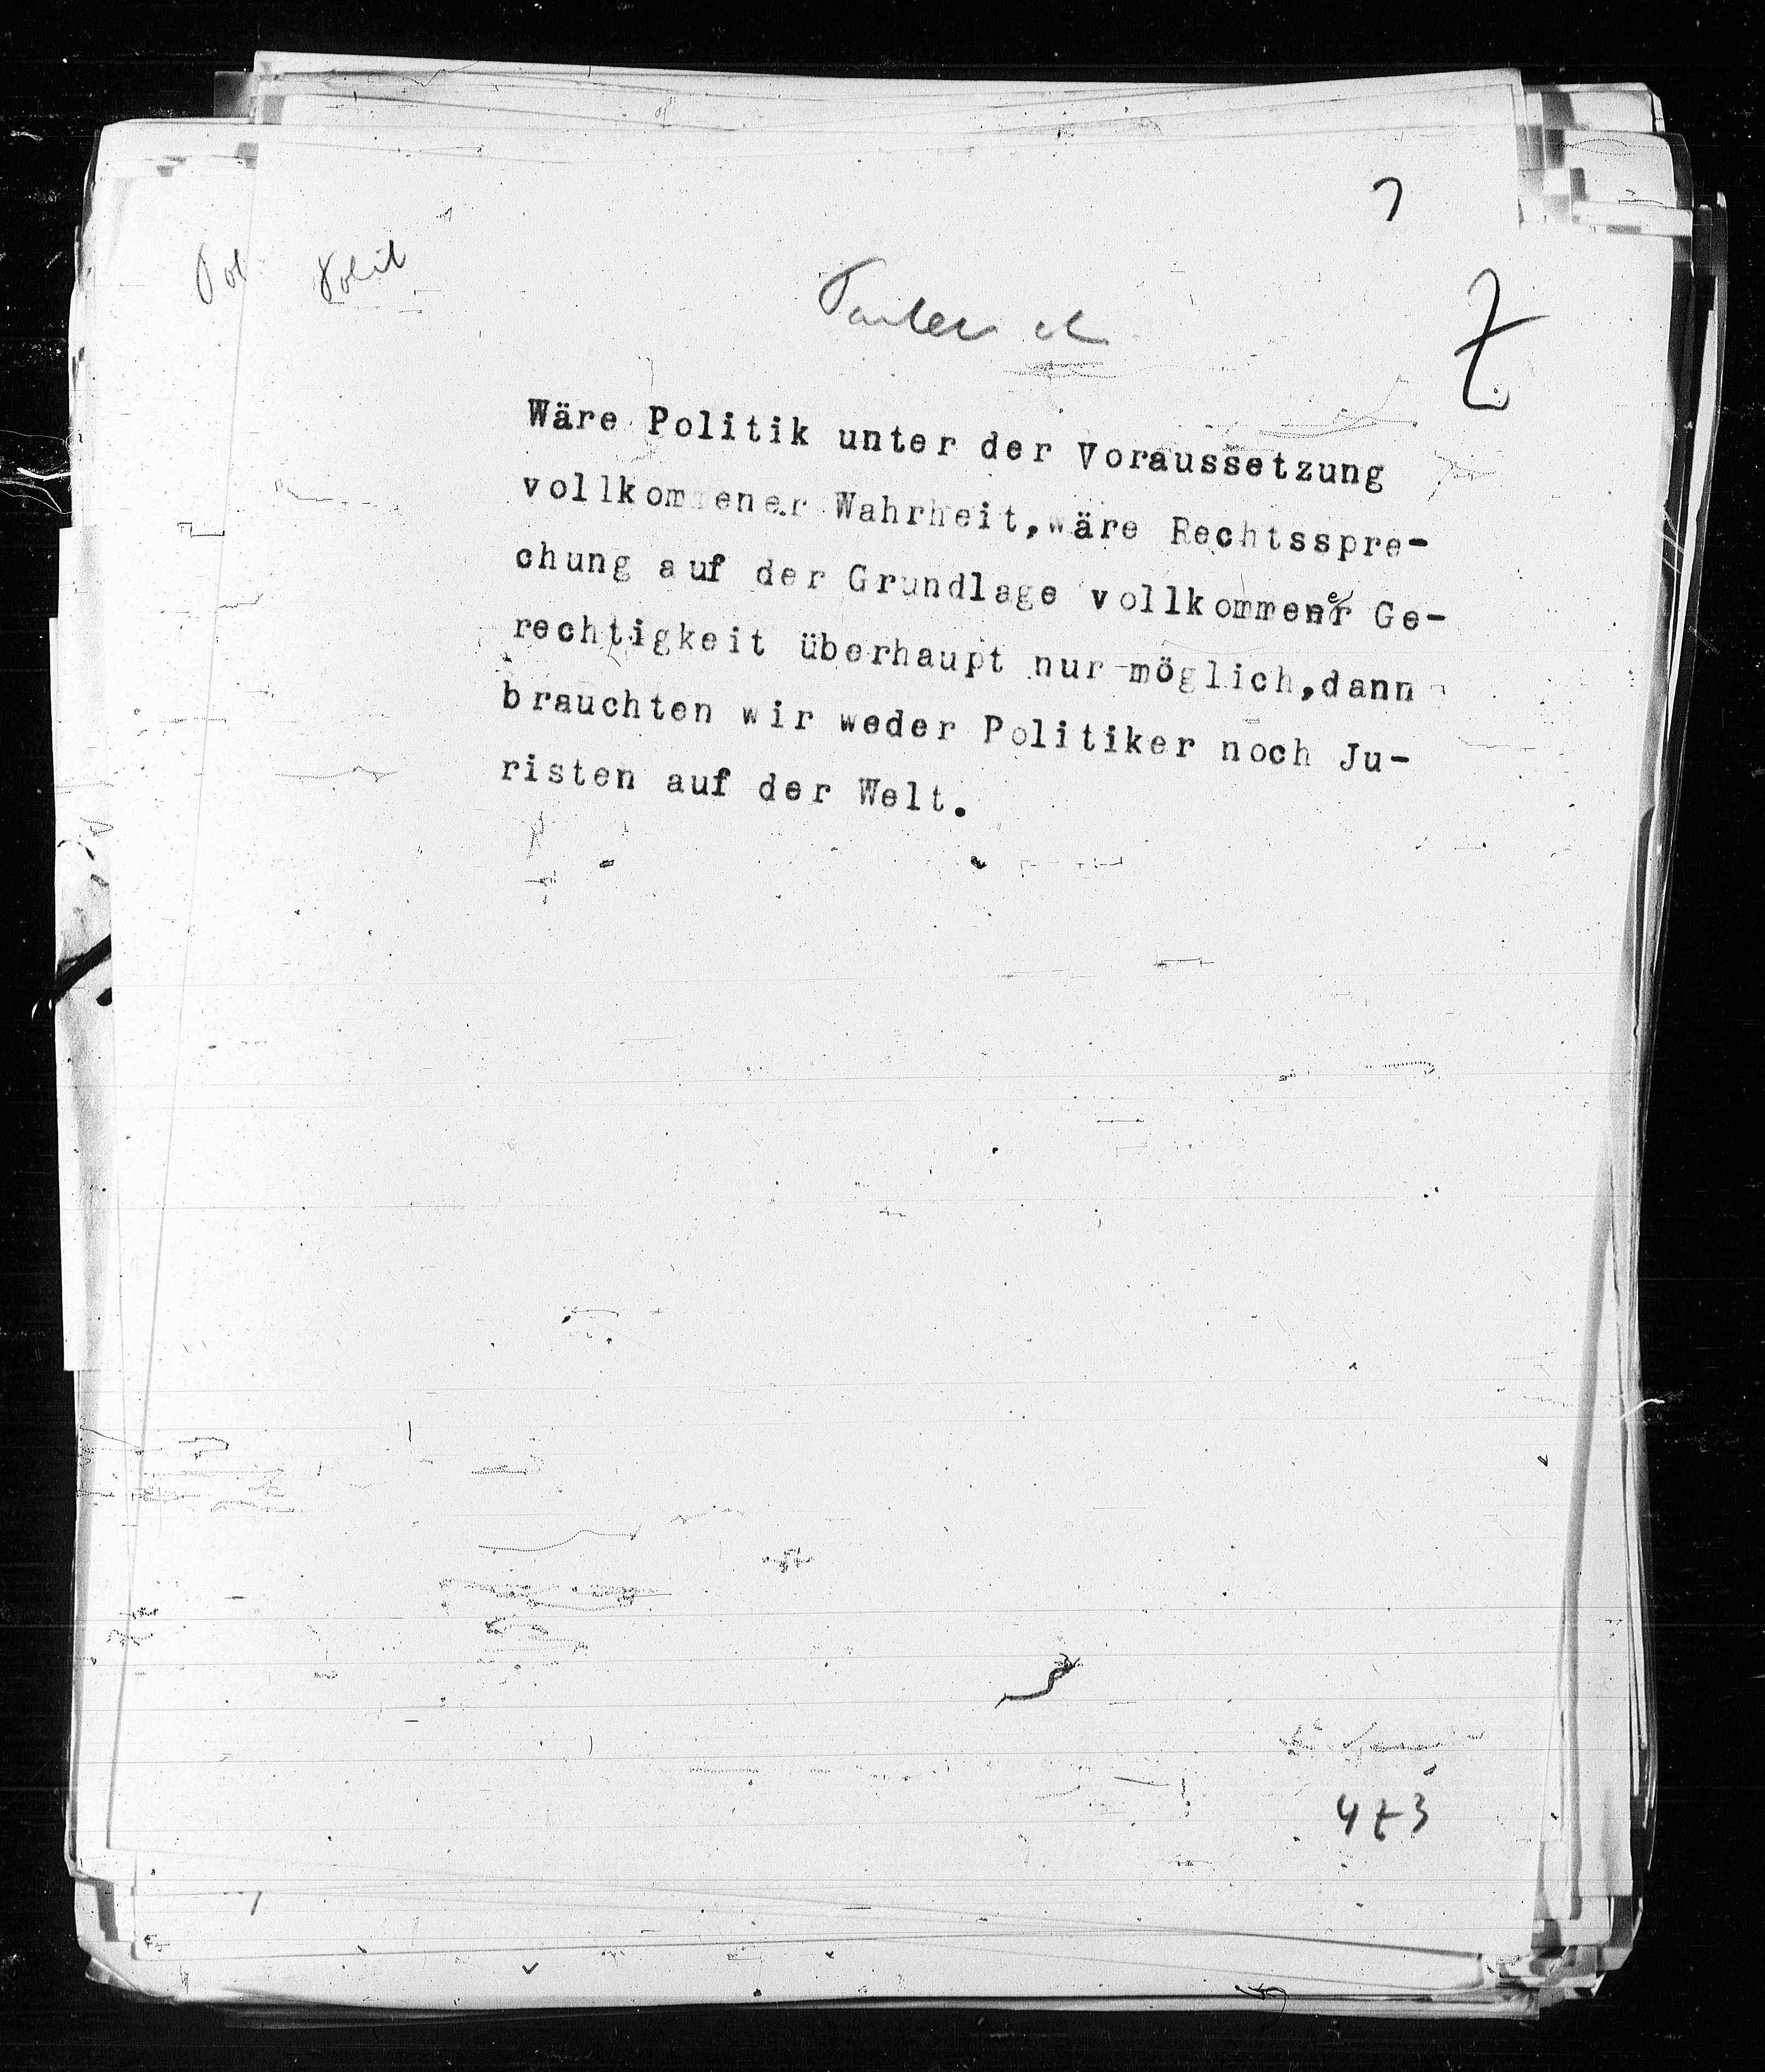 Pol Polit
Wäre Politik unter der Voraussetzung
vollkommener Wahrheit,wäre Rechtsspre-
chung auf der Grundlage vollkommener Ge-
rechtigkeit überhaupt nur möglich,dann
brauchten wir weder Politiker noch Ju-
risten auf der Welt.